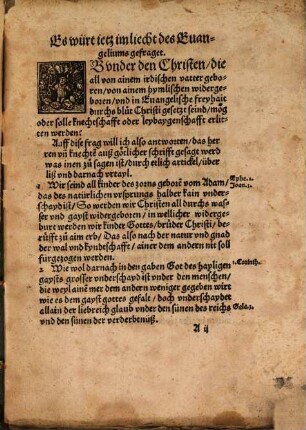 Es würt ietz im liecht des Euan-
geliums gefraget.
Ob vnder den Christen/die
all von ainem irdischen vatter gebo-
ren/von ainem hymlischen widerge-
boten/vnd in Euangelische freyhait
durchs blůt Christi gesetzt seind/mög
oder solle knechtschafft oder leybaygenschafft erlit-
ten werden?
Auff dise frag will ich also antworten/das her
ren vn̄ knechte auß götlicher schrifft gesagt werd
was inen zů sagen ist/durch etlich artickel/über
liß vnd darnach vrtayl.
1 Wir seind all kinder des zorns geborn vom Adam/
das des natürlichen vrsprungs halber kain vnder-
schayd ist/So werden wir Christen all durchs was-
ser vnd gayst widergeboten/in wellicher widerge-
burt werden wir kinder Gottes/brüder Christi/be-
rüfft zů aim erb/Das also nach der natur vnd gnad
der wal vnd kyndeschafft/ainer dem andern nit soll
fürgezogen werden.
Ephe. 2.
Joan. 1.
2 Wie wol darnach in den gaben Got des hayligen
gaysts grosser vnderschayd ist vnder den menschen/
die weyl ainē mer dem andern weniger gegeben wirt
wie es dem gayst gottes gefalt/doch vnderschaydet
allain der liebreich glaub vnder den sünen des reichs
vnd den sünen der verderbnüß.
1. Corinth.
Gala.
A ij